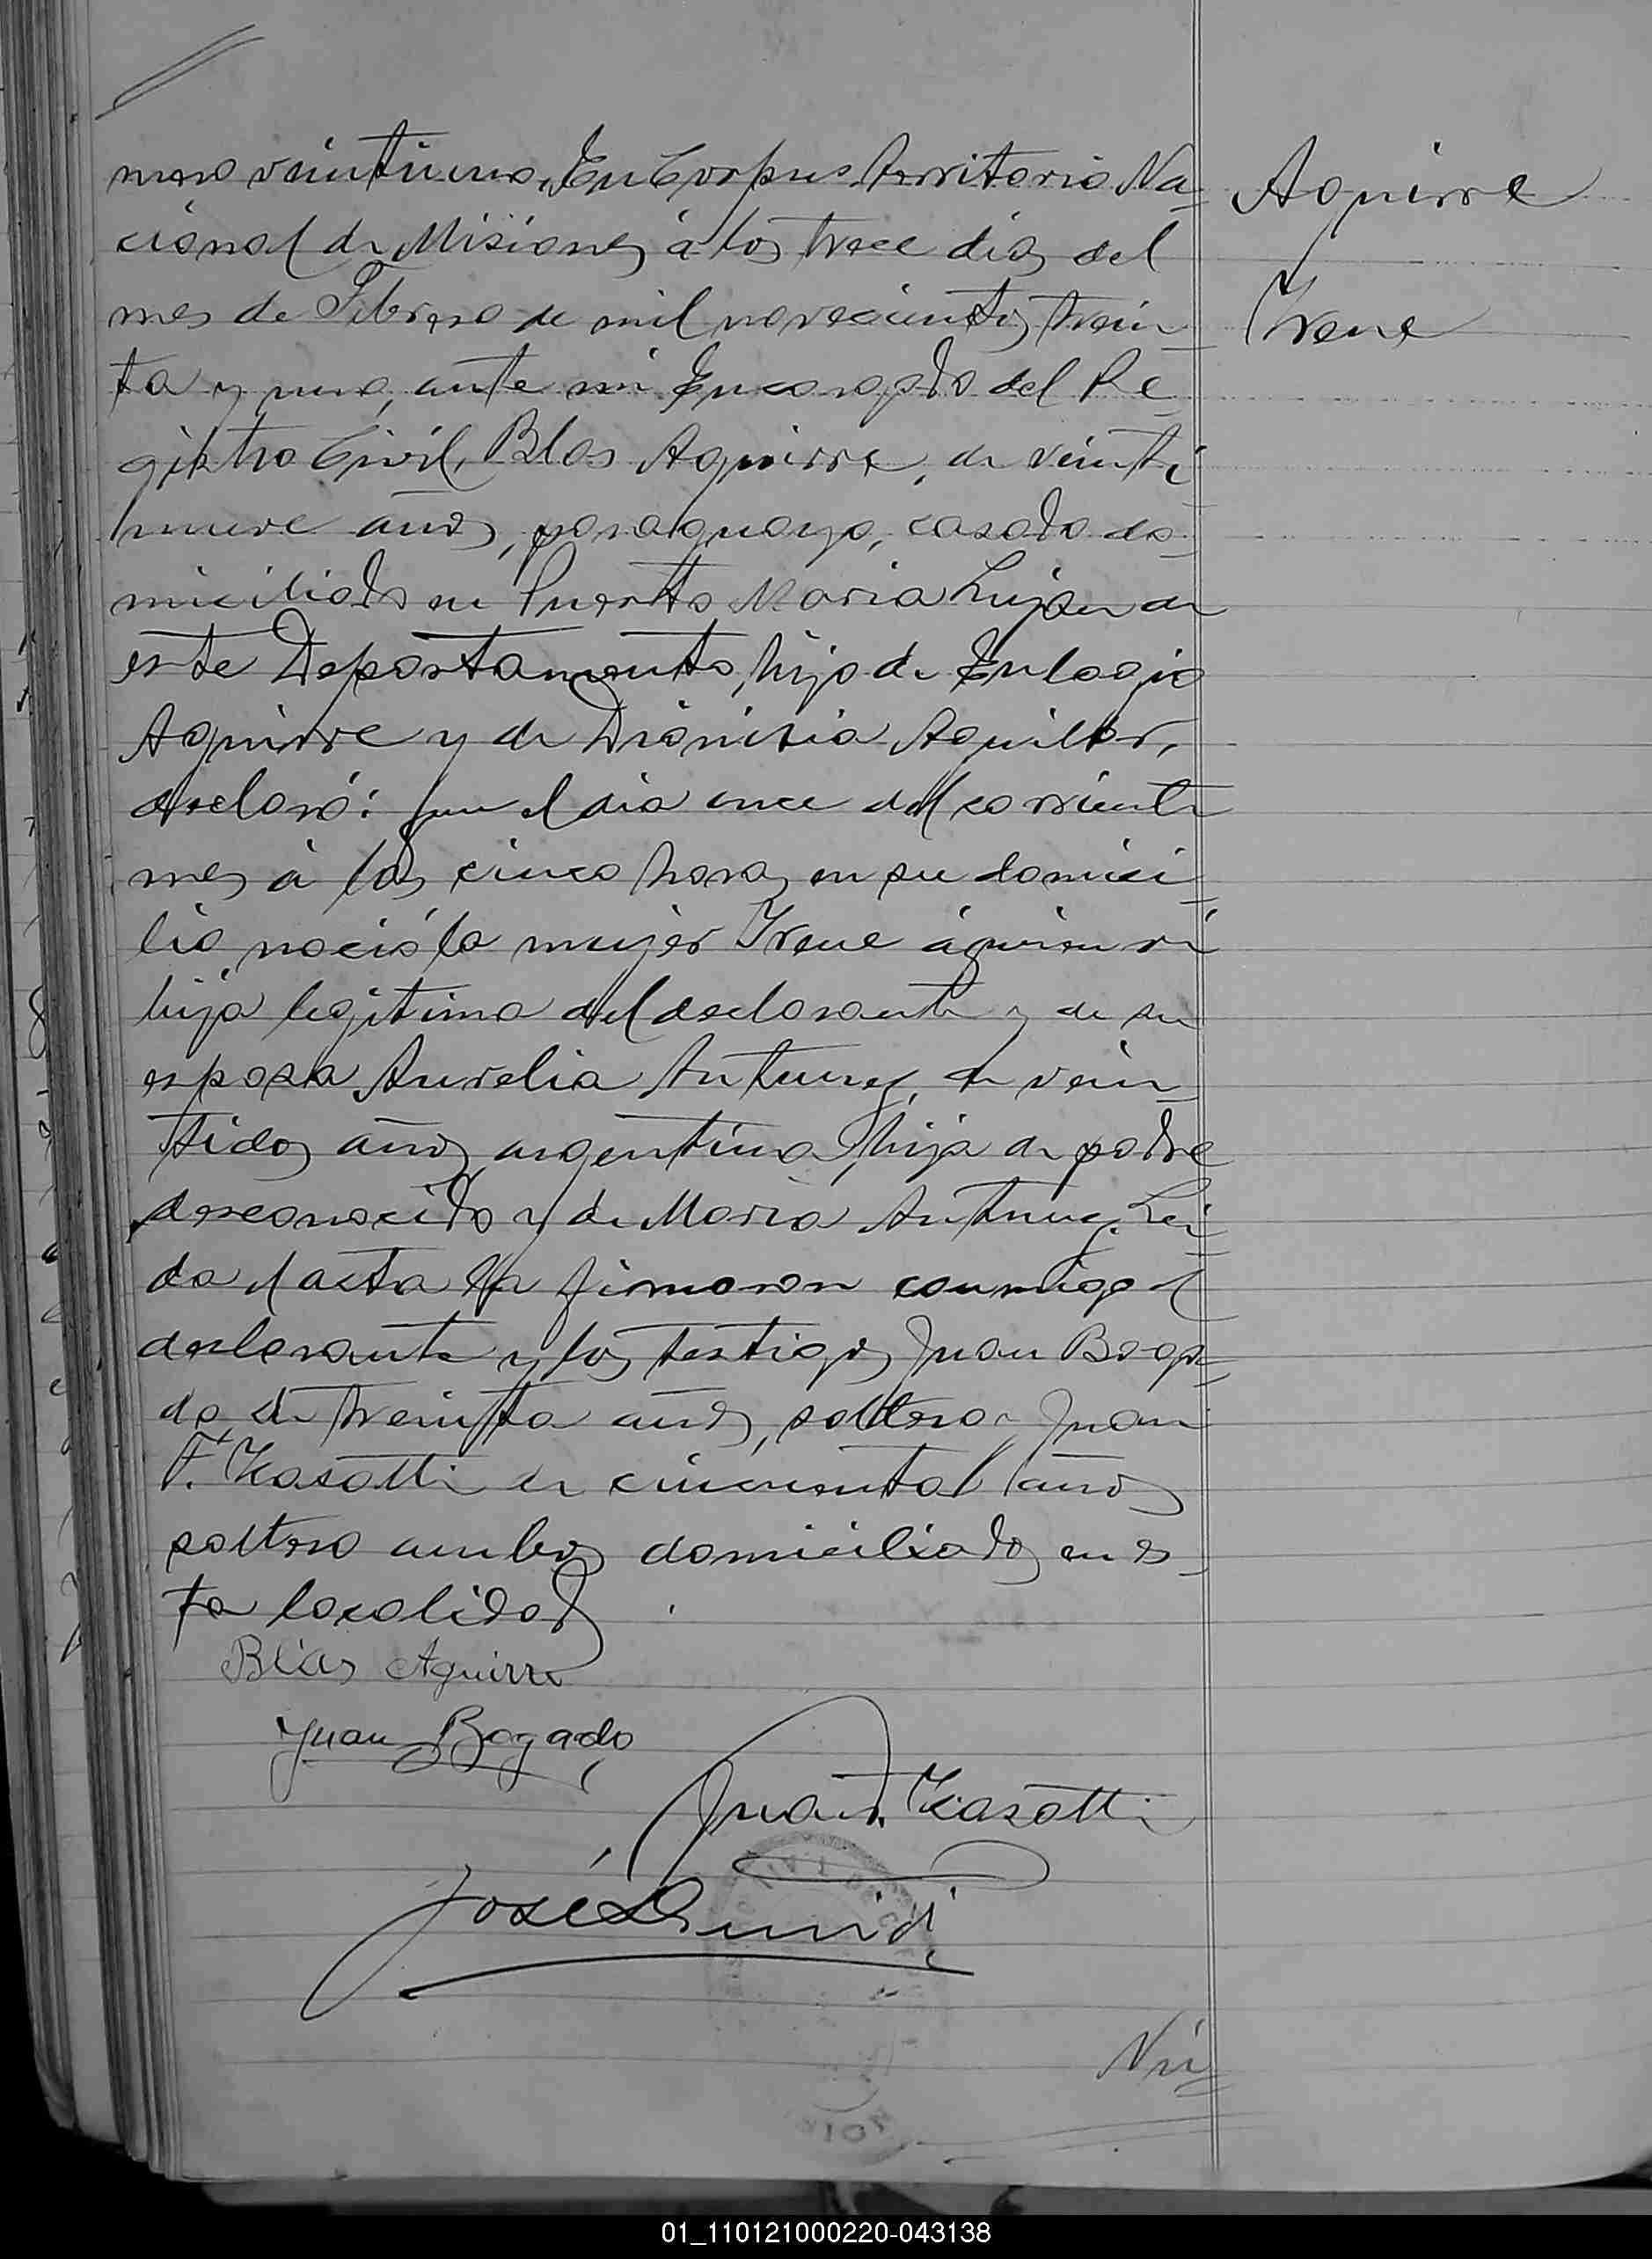 mero veintiuno, En Corpus Territorio Na-
cional de Misiones á los trece dias del
mes de Febrero de mil novecientos trein-
ta y uno, ante mi Encargado del Re-
gistro Civil, Blas Aguirre, de veinti-
nueve años, paraguayo, casado do-
miciliado en Puerto Maria Lujan de
este Departamento, hijo de Eulogio
Aguirre y de Dionisia Aguilar,
declaró: Que el dia once del corriente
mes á las cinco horas en su domici-
lio, nació la mujer Irene á quien vi
hija legitima del declarante y de su
esposa Aurelia Antunez, de vein-
tidos años, argentina, hija de padre
desconocido y de Maria Antunez. Lei-
da el acta la firmaron conmigo el
declarante y los testigos Juan Boga-
do de treinta años, soltero y Juan
F. Kasotti de cincuenta años
soltero ambos domiciliados en es-
ta localidad
Blas Aguirre
Juan Bogado
Juan F. Kasotti
José
Nú-
Aguirre
Irene
01_110121000220-043138